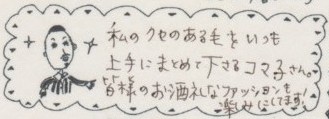 私のクセのある毛をいつも
上手にまとめて下さるコマ子さん。
皆様のお洒礼なファッションも
楽しみにしてます!